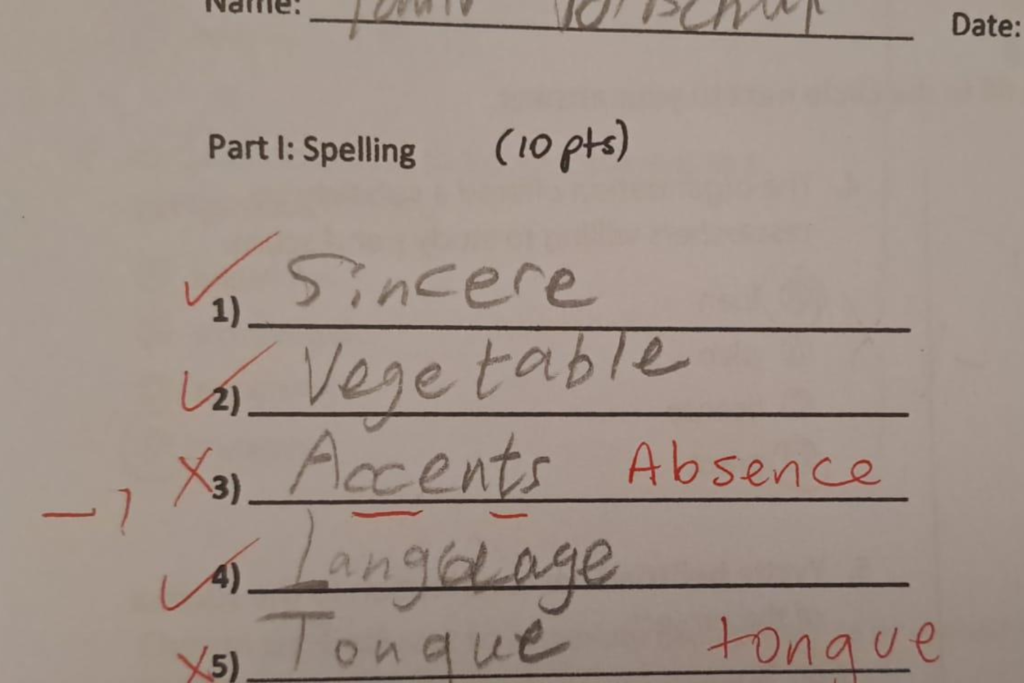 Name: Date:
Part I: Spelling (10 pts)
✓ 1) Sincere
✓ 2) Vegetable
X 3) Accents Absence
-1
✓ 4) Language
X 5) Tonque tonque